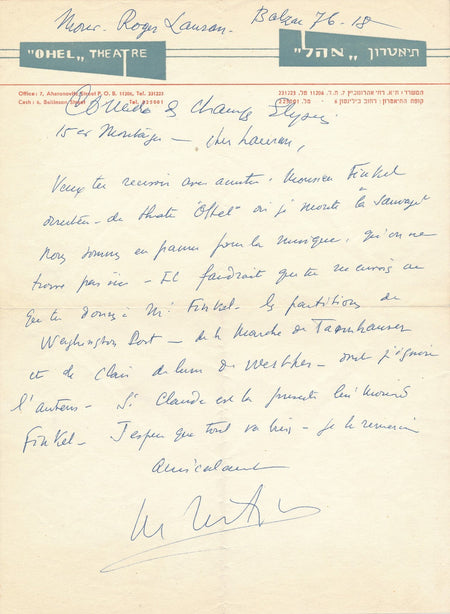 Monsr. Roger Lauran. Balzac 76-18
"OHEL" THEATRE
תיאטרון "אהל"
Office: 7, Aharonovitz Street P. O. B. 11206, Tel. 221225
Cash: 6, Beilinson Street Tel. 225501
המשרד: ת"א, רח' אהרונוביץ 7, ת.ד. 11206 טל. 221225
קופת התיאטרון: רחוב בילינסון 6 טל.
Comédie des Champs Elysées
15 av Montaigne — Cher Lauran,
Veux tu recevoir avec amitié, Monsieur Finkel
directeur du théâtre "Ohel" où je monte la Sauvage
Nous sommes en panne pour la musique, qu'on ne
trouve pas ici — Il faudrait que tu
que tu donnes à Mr Finkel les partitions de
Washington Post — de la Marche de Tannhauser
et de Clair de lune de Werther — dont j'ignore
l'auteur — Si Claude est là présente lui Monsr
Finkel — J'espère que tout va bien — je te remercie
Amicalement